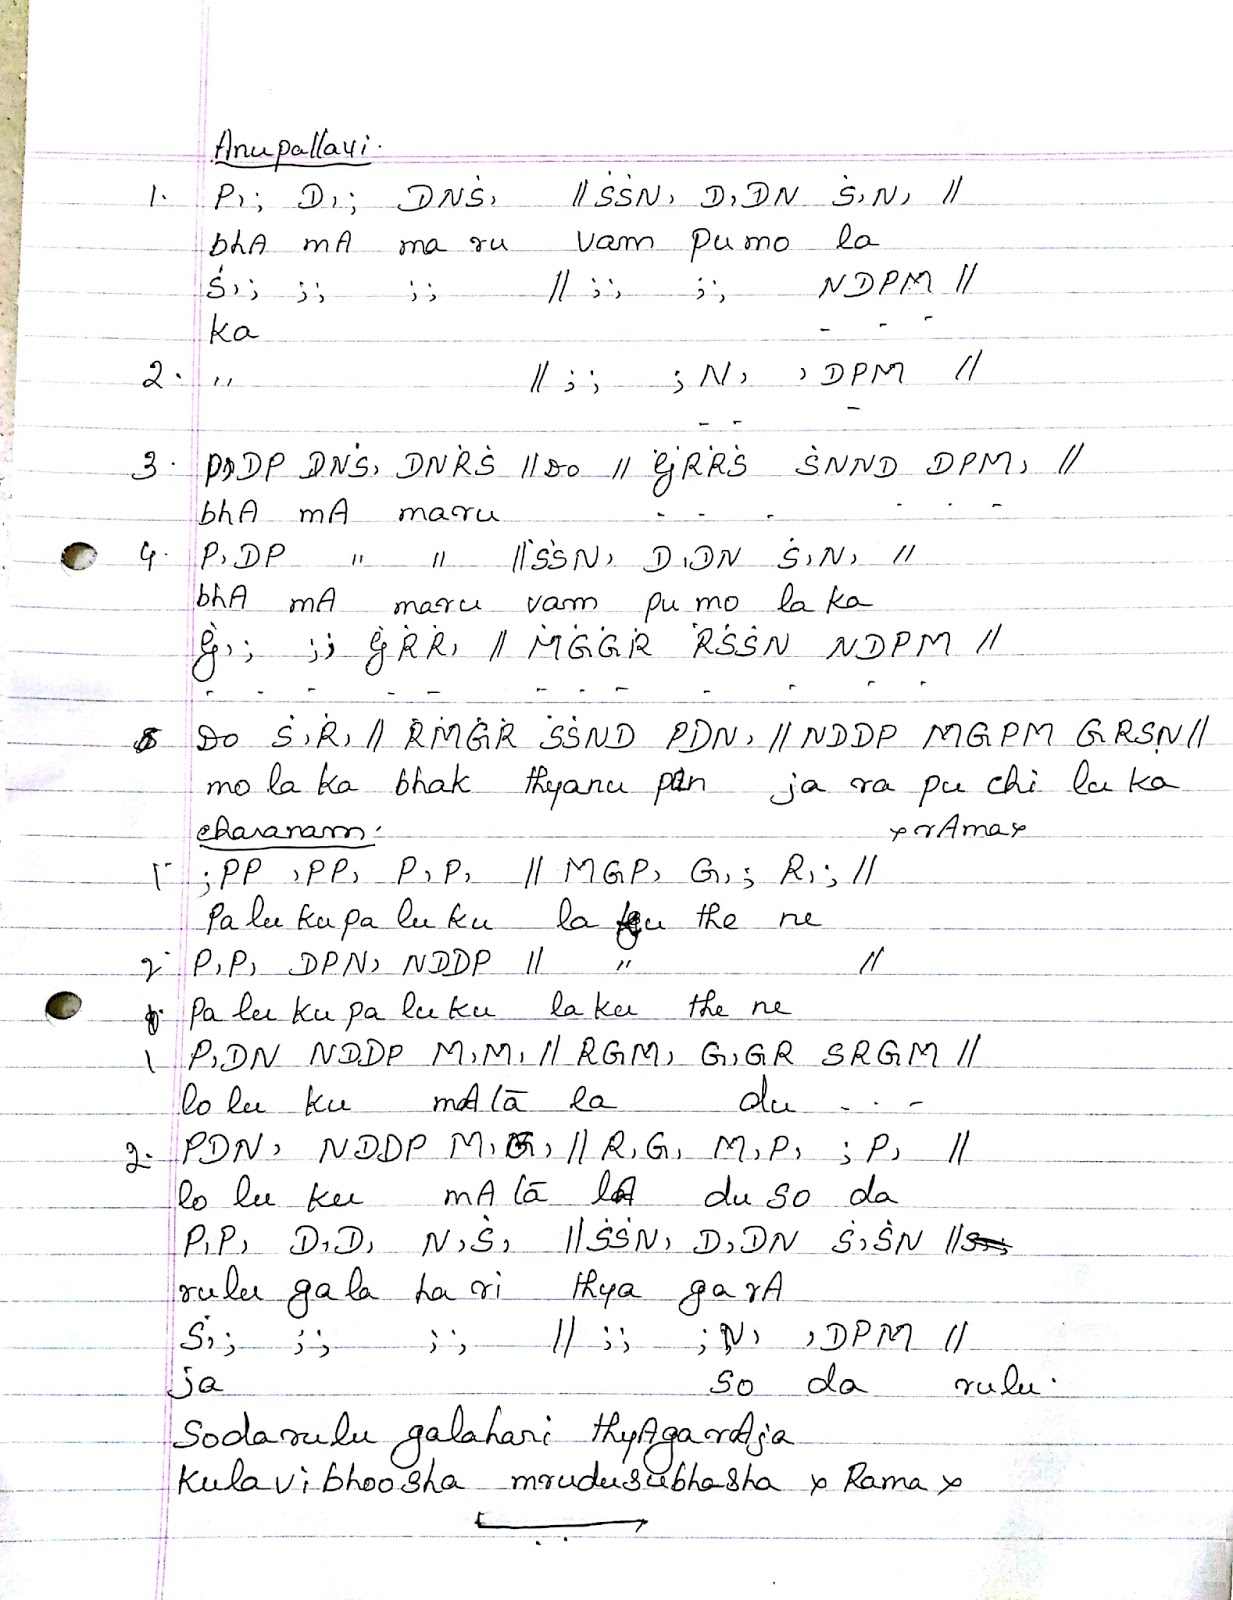 Anupallavi.
1. P,; D,; DNṠ, // ṠṠN, D,DN Ṡ,N, //
bhA mA ma ru vam pu mo la
Ṡ,; ;; ;; // ;; ;; NDPM //
ka - - -
2. " // ;; ;N, ,DPM //
- - -
3. P,DP DNṠ, DNṘṠ // Do // ĠṘṘṠ ṠNND DPM, //
bhA mA maru - - - - - -
4. P,DP " " // ṠṠN, D,DN Ṡ,N, //
bhA mA maru vam pu mo la ka
Ġ,; ;; ĠṘṘ, // ṀĠĠṘ ṘṠṠN NDPM //
- - - - - - - - - - -
5 Do Ṡ,Ṙ, // ṘṀĠṘ ṠṠND PDN, // NDDP MGPM GRSṆ //
mo la ka bhak thyanu pan ja ra pu chi lu ka
charanam. x rAma x
1 ;PP ,PP, P,P, // MGP, G,; R,; //
Pa lu ku pa lu ku la ku the ne
2 P,P, DPN, NDDP // " //
Pa lu ku pa lu ku la ku the ne
1 P,DN NDDP M,M, // RGM, G,GR SRGM //
lo lu ku mA tā la du - - -
2. PDN, NDDP M,G, // R,G, M,P, ;P, //
lo lu ku mA tā lA du so da
P,P, D,D, N,Ṡ, // ṠṠN, D,DN Ṡ,ṠN //
rulu gala ha ri thya ga rA
Ṡ,; ;; ;; // ;; ;N, ,DPM //
ja so da rulu.
Sodarulu galahari thyAgarAja
kulavibhoosha mrudusubhasha x Rama x